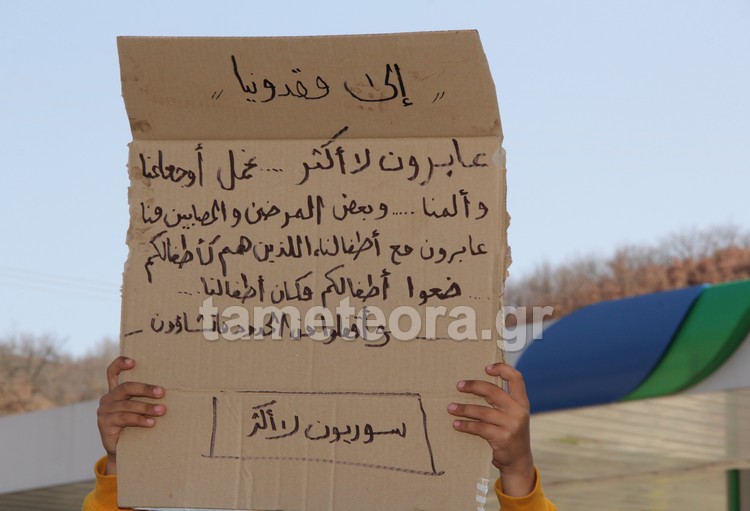 " إلى مقدونيا "
عابرون لا أكثر .... نحمل أوجاعنا
وألمنا ..... وبعض المرضى والمصابين منا
عابرون مع أطفالنا، اللذين هم كأطفالكم
... ضعوا أطفالكم مكان أطفالنا ...
الحدود ماتشاؤون
سوريون لا أكثر
tameteora.gr